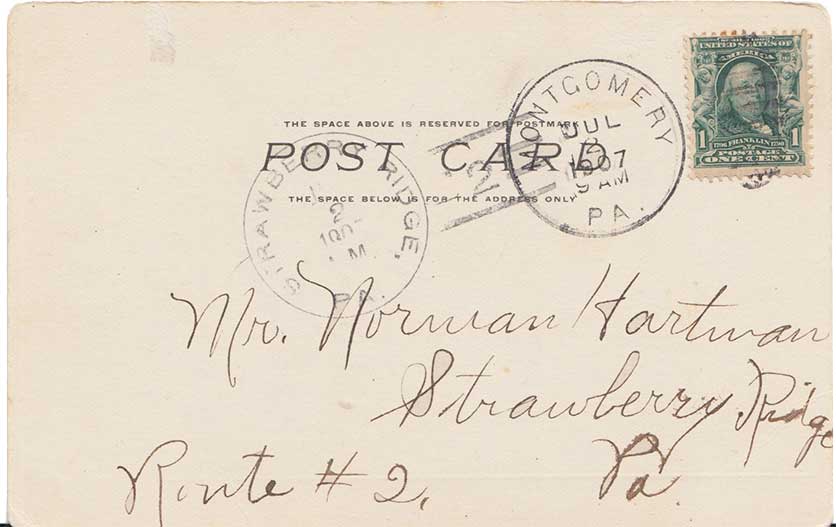 UNITED STATES OF
AMERICA
1 1706 FRANKLIN 1790 1
POSTAGE
ONE CENT
MONTGOMERY
JUL
2
1907
9 AM
PA.
THE SPACE ABOVE IS RESERVED FOR POSTMARK
POST CARD
THE SPACE BELOW IS FOR THE ADDRESS ONLY
2
STRAWBERRY RIDGE,
2
190
M.
PA.
Mr. Norman Hartman
Strawberry Ridge
Route # 2. Pa.